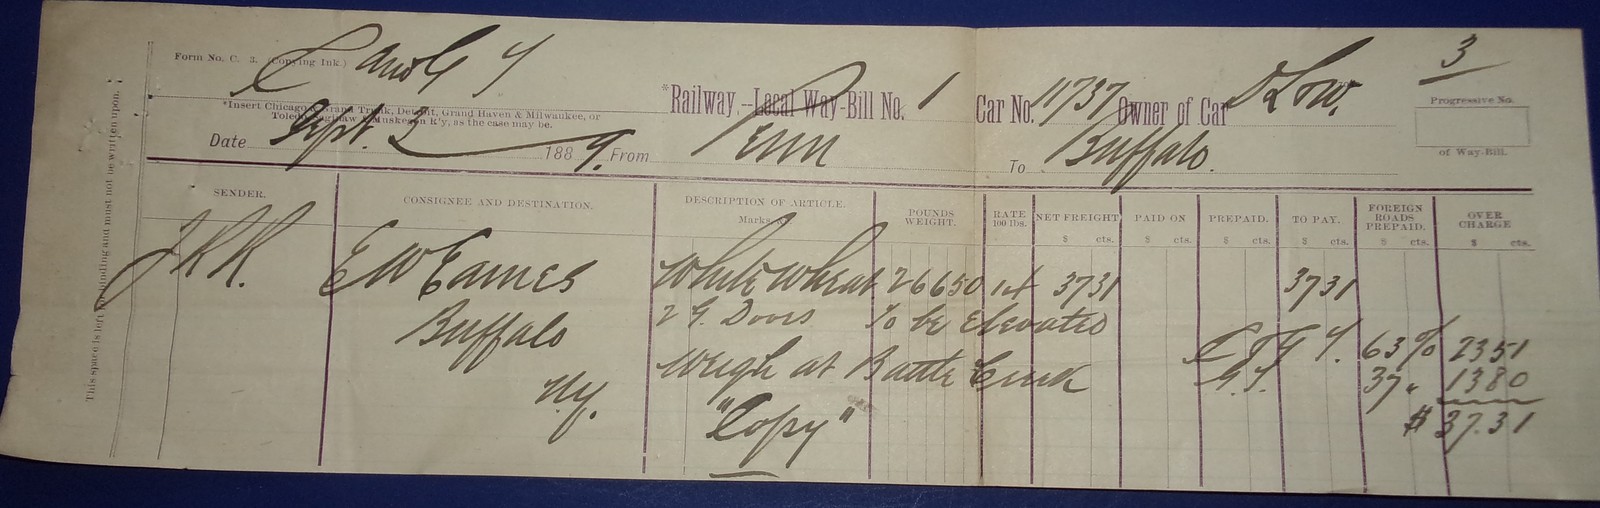 Form No. C. 3. (Copying Ink.) C and G T
*Railway.--Local Way-Bill No. 1 Car No. 11737 Owner of Car D L & W. 3
*Insert Chicago & Grand Trunk, Detroit, Grand Haven & Milwaukee, or
Toledo, Saginaw & Muskegon R'y, as the case may be.
Progressive No.
of Way-Bill.
Date Sept. 3 1889. From Penn To Buffalo.
This space is left for binding and must not be written upon.
SENDER. CONSIGNEE AND DESTINATION. DESCRIPTION OF ARTICLE. Marks, &c. POUNDS WEIGHT. RATE 100 lbs. NET FREIGHT $ cts. PAID ON PREPAID. $ cts. TO PAY. $ cts. FOREIGN ROADS PREPAID. $ cts. OVER CHARGE $ cts.
J K K. E W Eames White Wheat 26650 14 3731 3731
Buffalo 2 G. Doors To be Elevated
C & G T. 63 % 2351
N.Y. Weigh at Battle Creek G.T. 37 " 1380
"Copy" $ 37.31